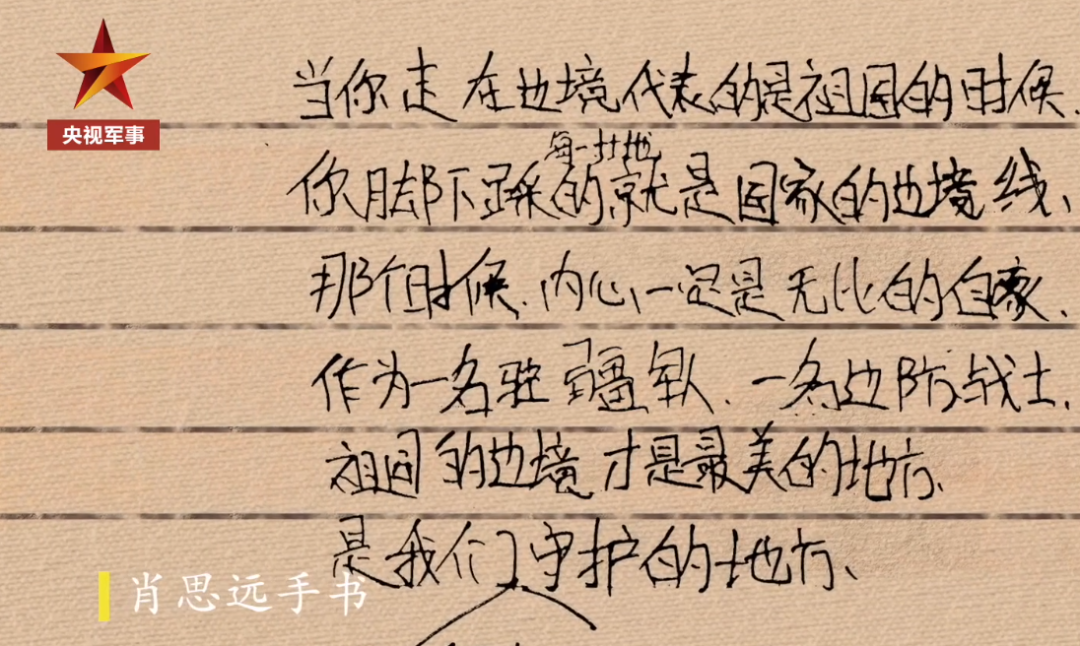 央视军事
当你走在边境代表的是祖国的时候、
每一寸地
你脚下踩的就是国家的边境线、
那个时候、内心一定是无比的自豪、
作为一名驻疆军人、一名边防战士、
祖国的边境才是最美的地方、
是我们守护的地方、
肖思远手书